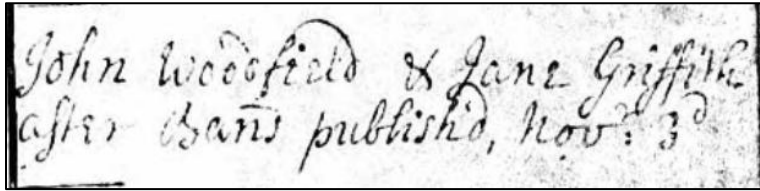 John Woodfield & Jane Griffith
after Ban̅s publish'd, Nov.r 3d